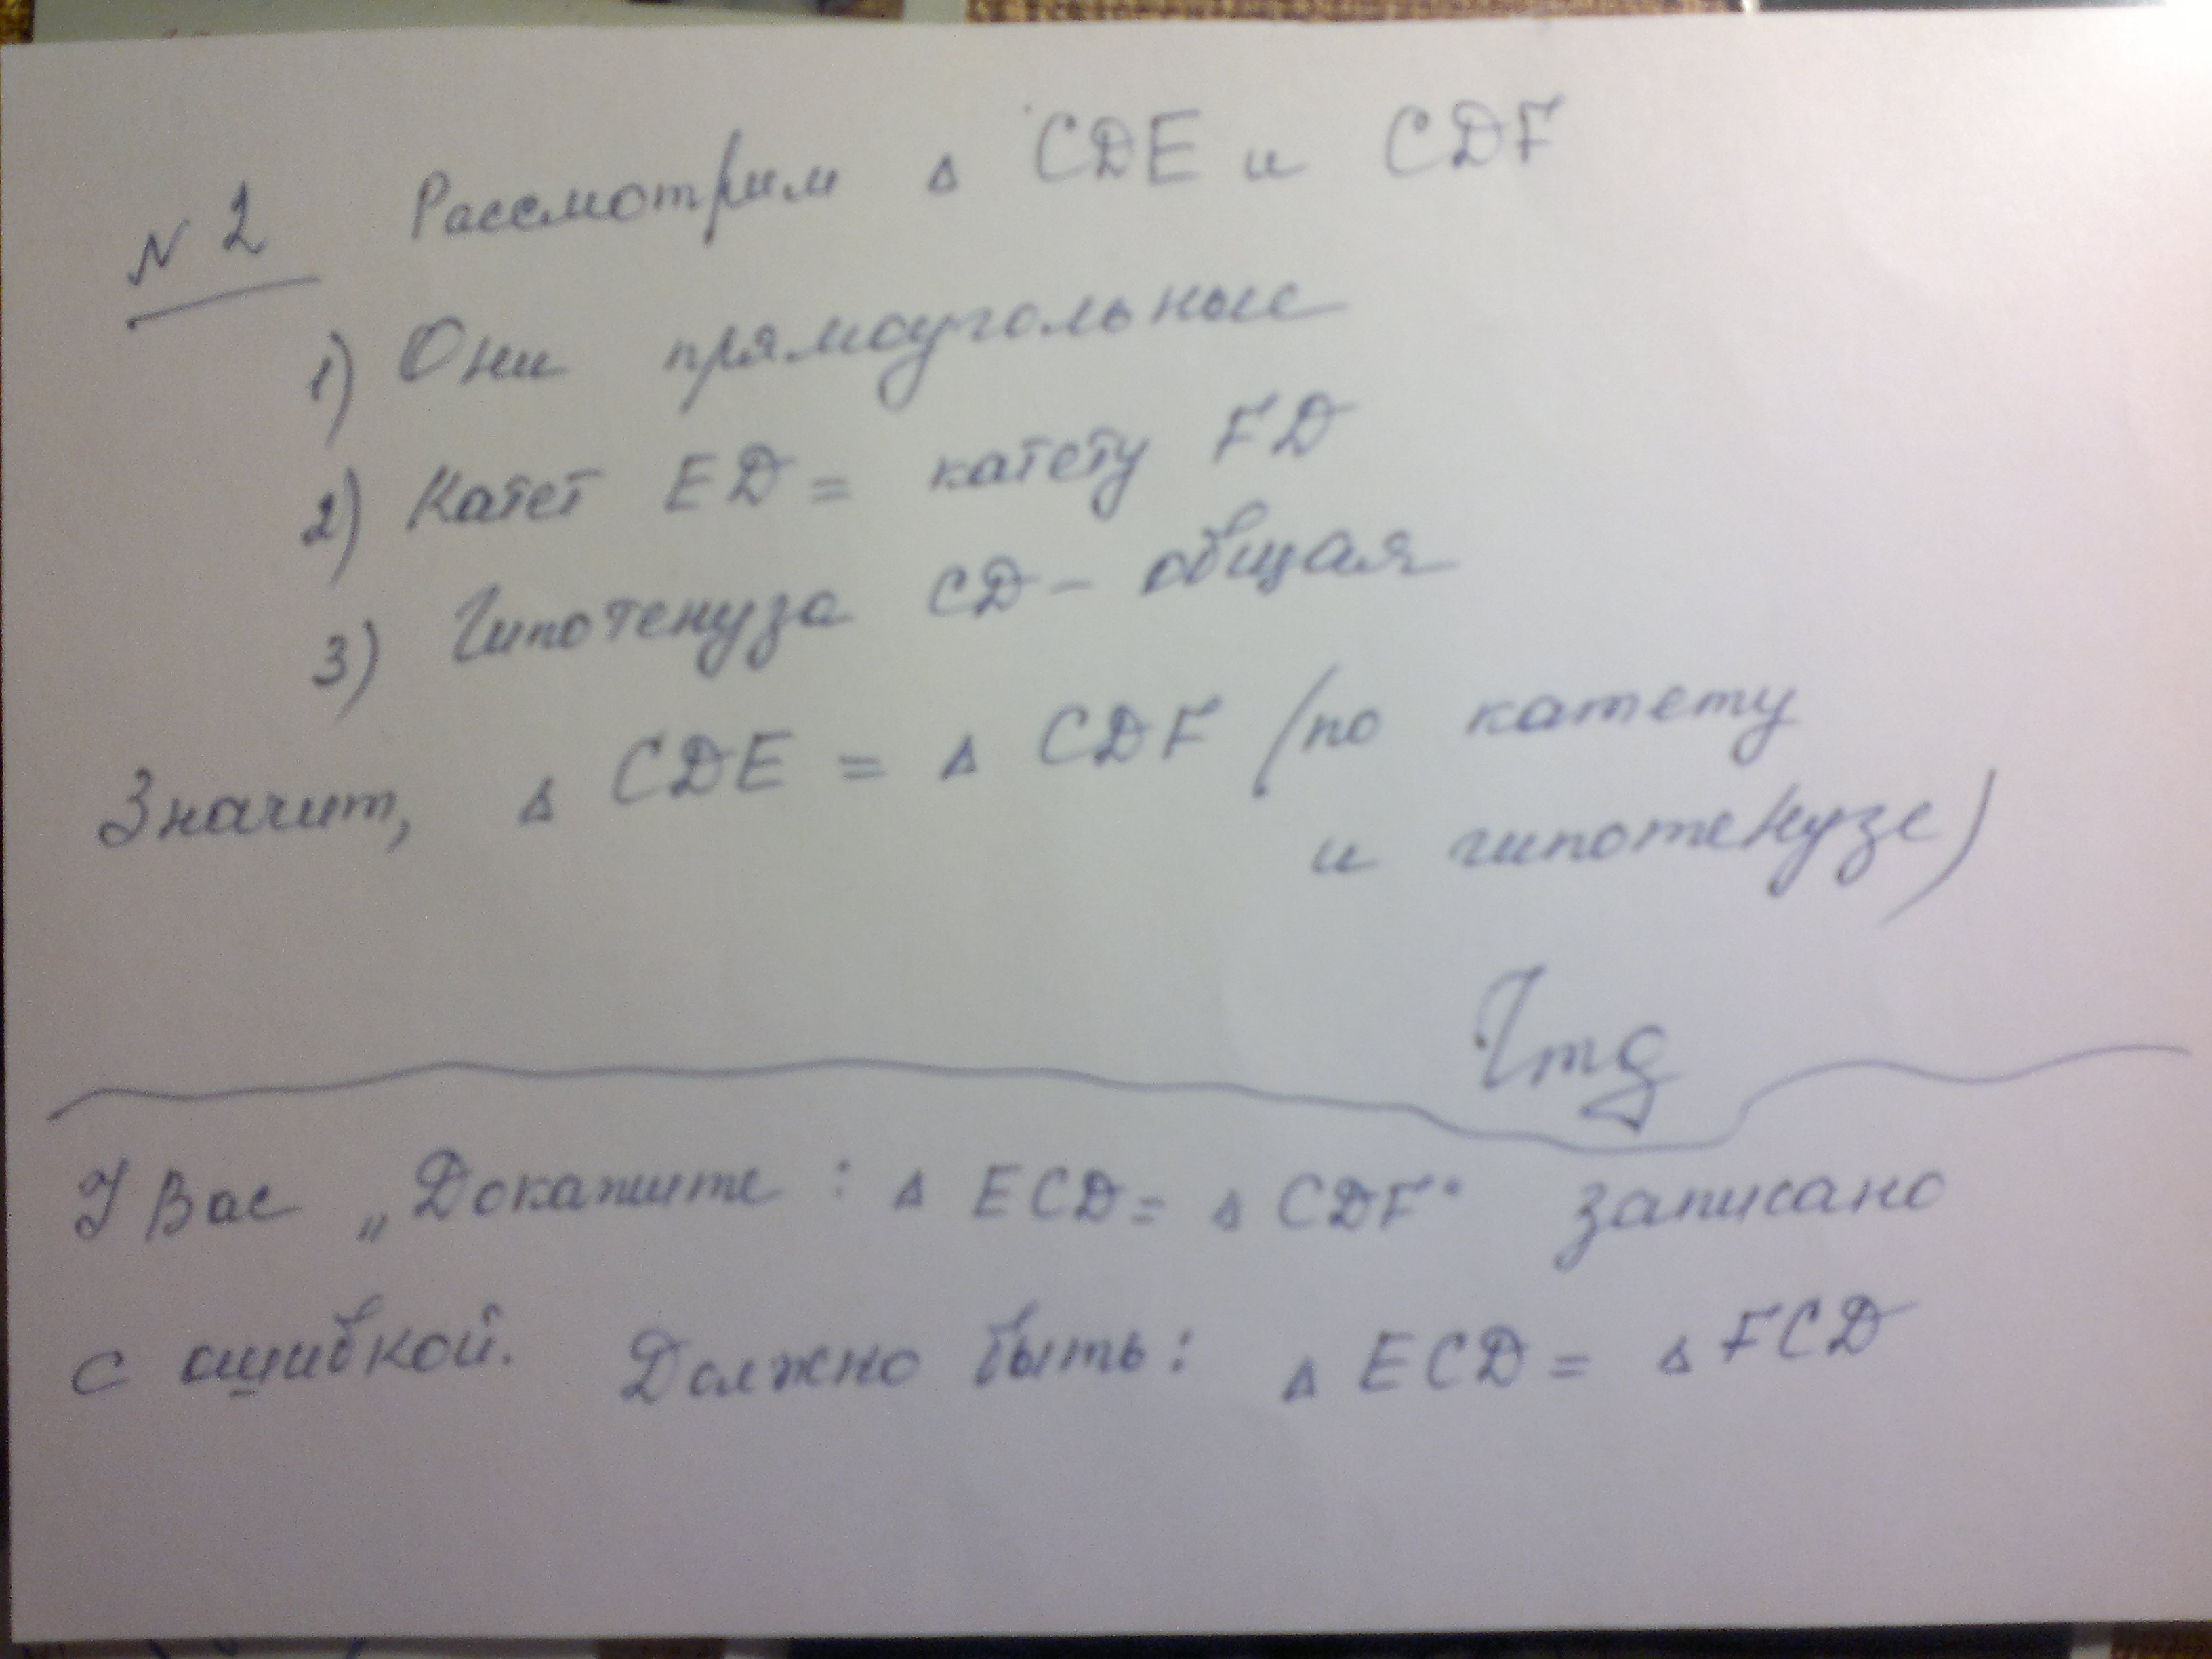 N 2 Рассмотрим Δ CDE и CDF
1) Они прямоугольные
2) Катет ED = катету FD
3) Гипотенуза CD – общая
Значит, Δ CDE = Δ CDF (по катету
и гипотенузе)
У Вас „Докажите : Δ ECD = Δ CDF" записано
с ошибкой. Должно быть : Δ ECD = Δ FCD